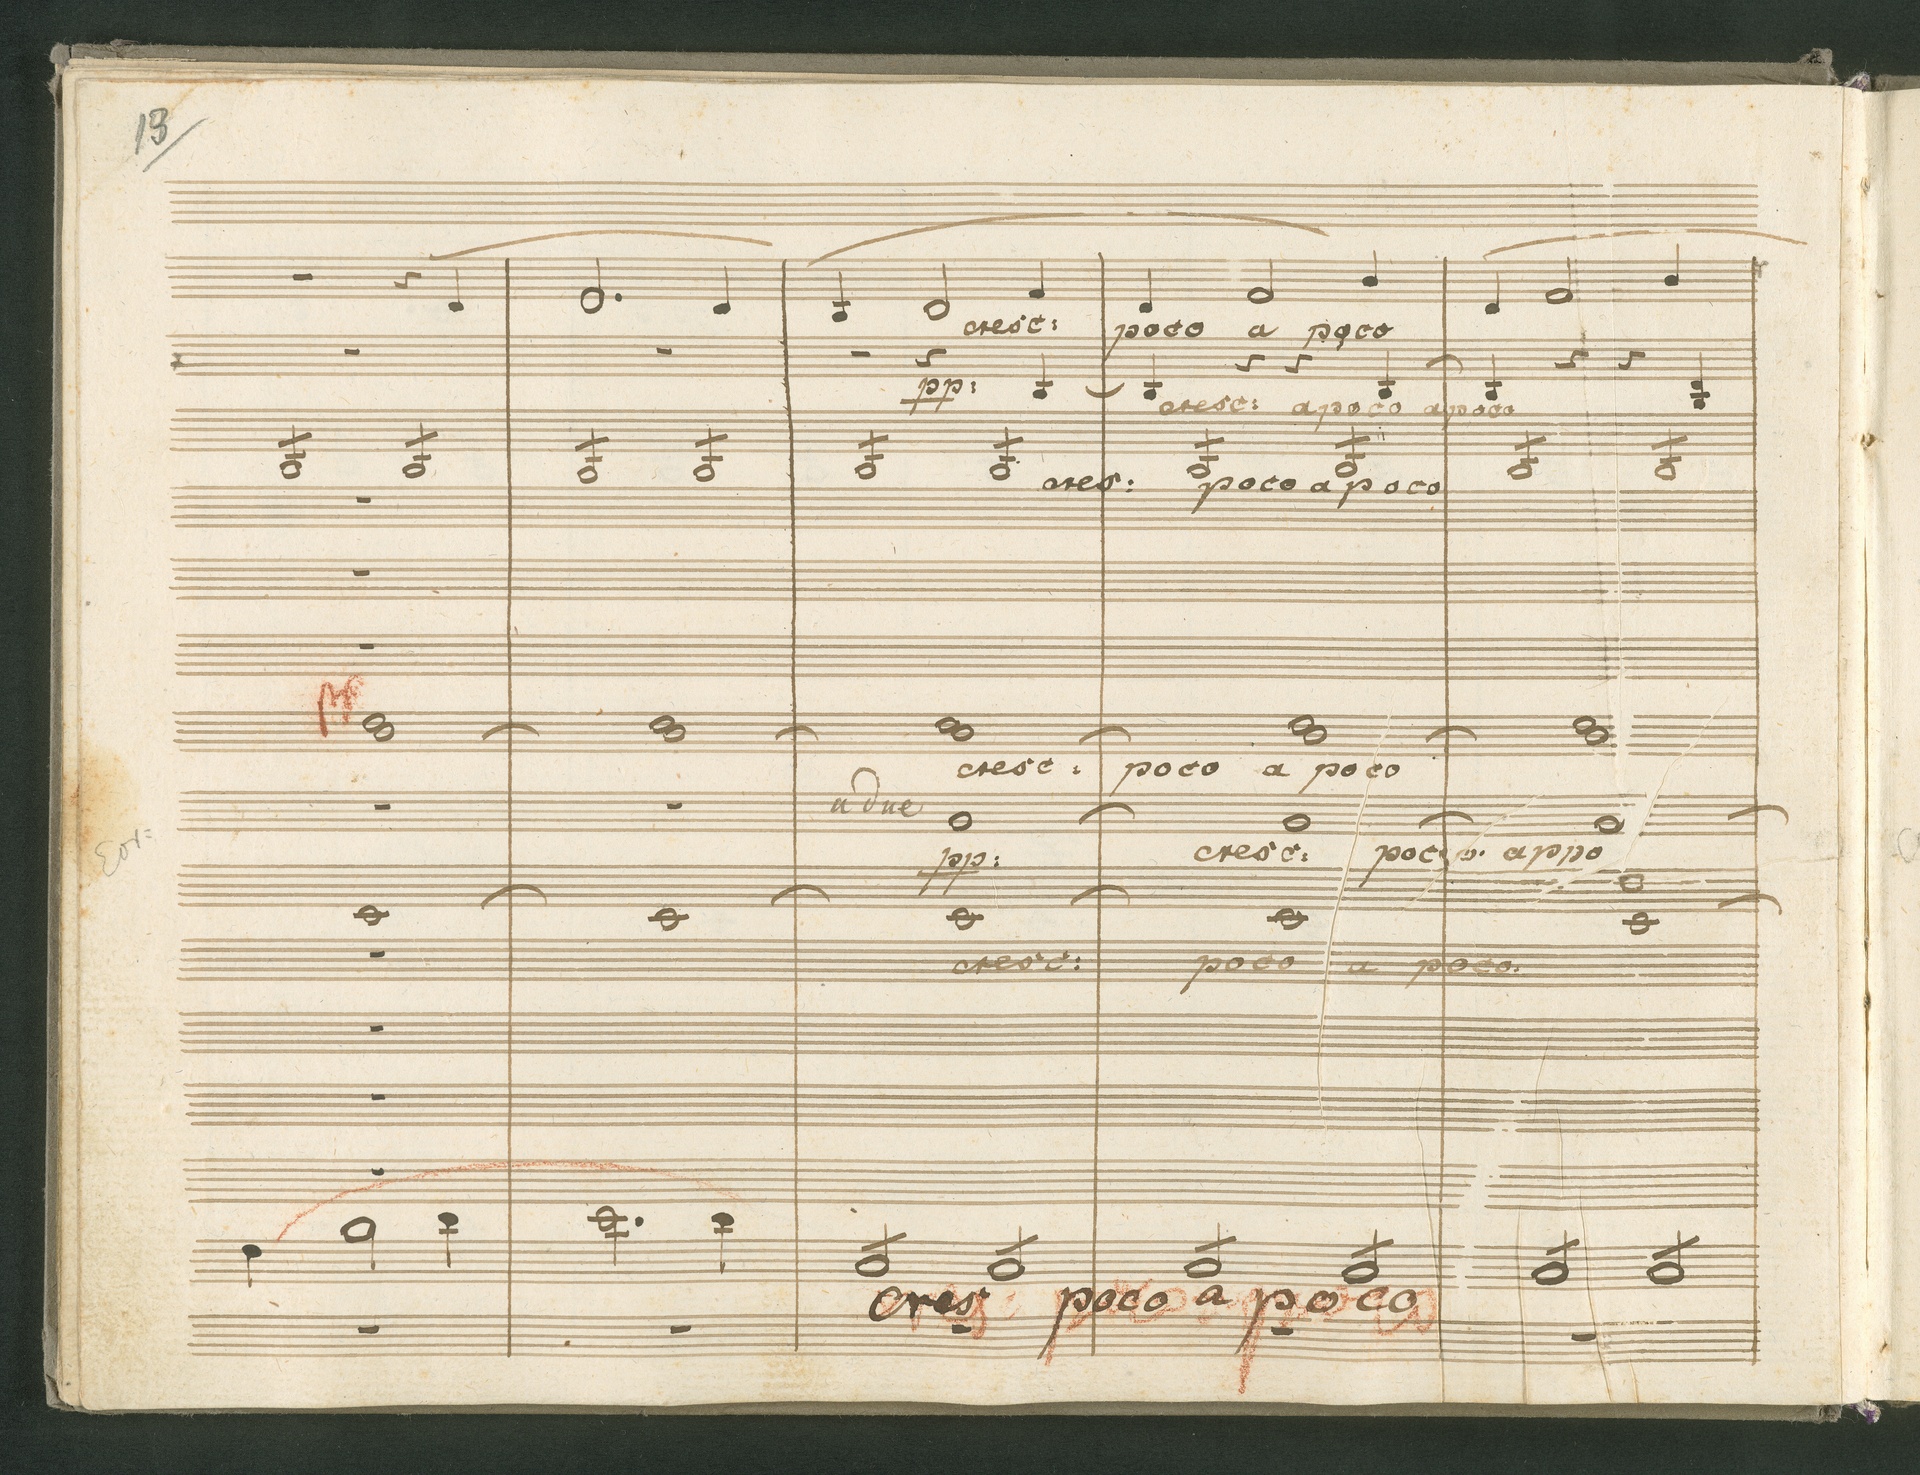 13
cresc: poco a poco
pp:
cresc: apoco apoco
cres: poco a poco
pp
cresc: poco a poco
a due
pp: cresc: poco a appo
Cor:
cresc: poco a poco.
cres: poco a poco